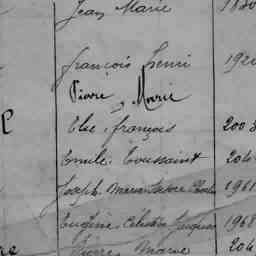 Jean Marie 18
François Henri 192
Pierre Marie
Elie François 200
Emile Toussaint 204
Joseph Marie 1961
Eugène Célestin Jacques 1968
Pierre Marie 204